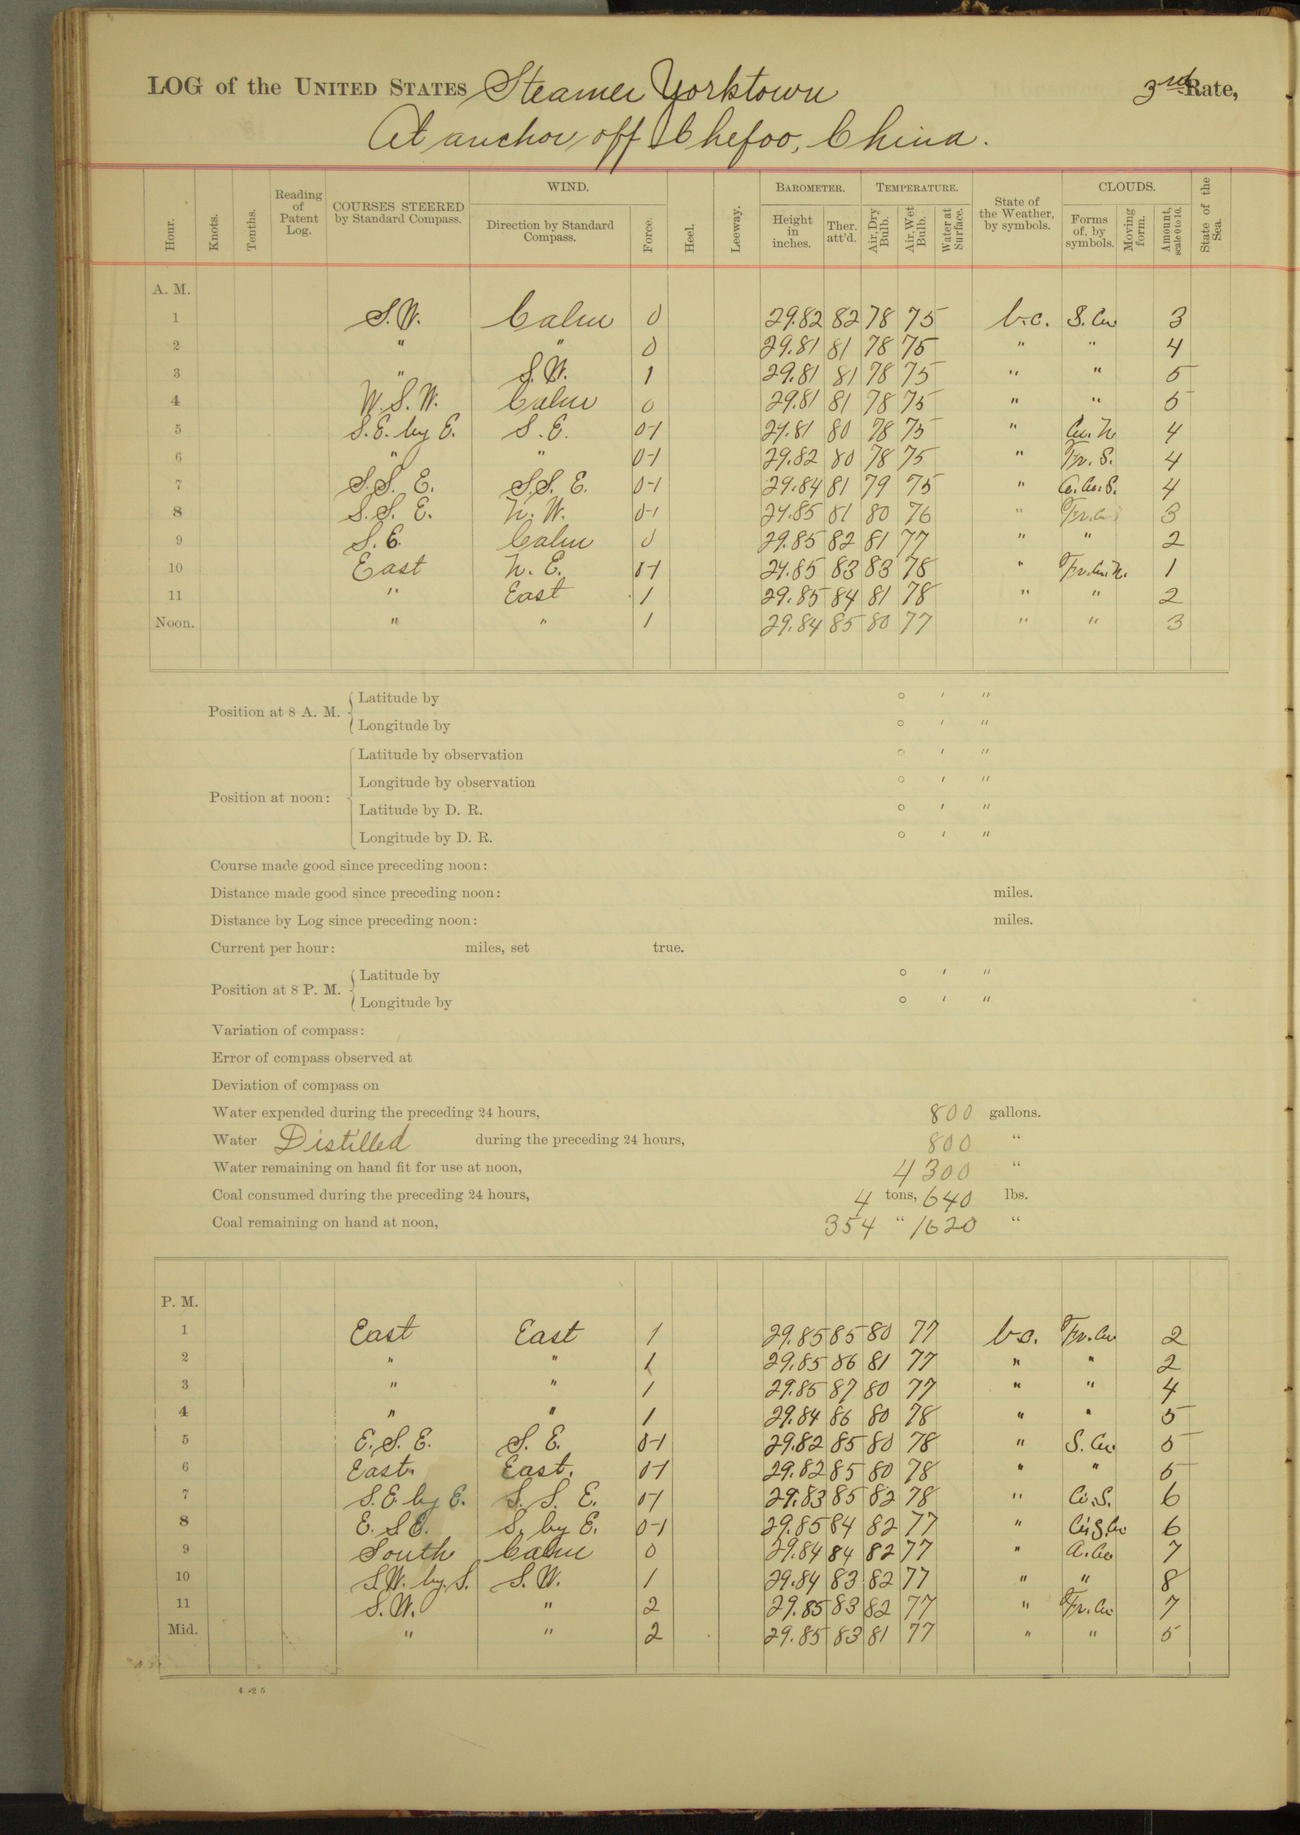 LOG of the UNITED STATES Steamer Yorktown 3rd Rate,
At anchor off Chefoo, China.
Hour. Knots. Tenths. Reading of Patent Log. COURSES STEERED by Standard Compass. WIND. Direction by Standard Compass. Force. Heel. Leeway. BAROMETER. Height in inches. Ther. att'd. TEMPERATURE. Air, Dry Bulb. Air, Wet Bulb. Water at Surface. State of the Weather, by symbols. CLOUDS. Forms of, by symbols. Moving form. Amount, scale 0 to 10. State of the Sea.
A. M.
1 S.W. Calm 0 29.82 82 78 75 b.c. S.Cu 3
2 " " 0 29.81 81 78 75 " " 4
3 " S.W. 1 29.81 81 78 75 " " 5
4 W.S.W. Calm 0 29.81 81 78 75 " " 5
5 S.E. by E. S.E. 0-1 29.81 80 78 75 " Cu.N 4
6 " " 0-1 29.82 80 78 75 " Fr.S. 4
7 S.S.E. S.S.E. 0-1 29.84 81 79 75 " 4
8 S.S.E. N.W. 0-1 29.85 81 80 76 " Fr.Cu 3
9 S.E. Calm 0 29.85 82 81 77 " " 2
10 East N.E. 0-1 29.85 83 83 78 " Fr.Cu.N. 1
11 " East 1 29.85 84 81 78 " " 2
Noon. " " 1 29.84 85 80 77 " " 3
Position at 8 A. M. Latitude by ° ′ ″
Longitude by ° ′ ″
Position at noon: Latitude by observation ° ′ ″
Longitude by observation ° ′ ″
Latitude by D. R. ° ′ ″
Longitude by D. R. ° ′ ″
Course made good since preceding noon:
Distance made good since preceding noon: miles.
Distance by Log since preceding noon: miles.
Current per hour: miles, set true.
Position at 8 P. M. Latitude by ° ′ ″
Longitude by ° ′ ″
Variation of compass:
Error of compass observed at
Deviation of compass on
Water expended during the preceding 24 hours, 800 gallons.
Water Distilled during the preceding 24 hours, 800 "
Water remaining on hand fit for use at noon, 4300 "
Coal consumed during the preceding 24 hours, 4 tons, 640 lbs.
Coal remaining on hand at noon, 354 " 1620 "
P. M.
1 East East 1 29.85 85 80 77 b.c. Fr.Cu 2
2 " " 1 29.85 86 81 77 " " 2
3 " " 1 29.85 87 80 77 " " 4
4 " " 1 29.84 86 80 78 " " 5
5 E.S.E. S.E. 0-1 29.82 85 80 78 " S.Cu. 5
6 East. East. 0-1 29.82 85 80 78 " " 5
7 S.E. by E. S.S.E. 0-1 29.83 85 82 78 " Ci.S. 6
8 E.S.E. S. by E. 0-1 29.85 84 82 77 " 6
9 South Calm 0 29.84 84 82 77 " A.Cu 7
10 S.W. by S. S.W. 1 29.84 83 82 77 " " 8
11 S.W. " 2 29.85 83 82 77 " Fr.Cu. 7
Mid. " " 2 29.85 83 81 77 " " 5
4-25